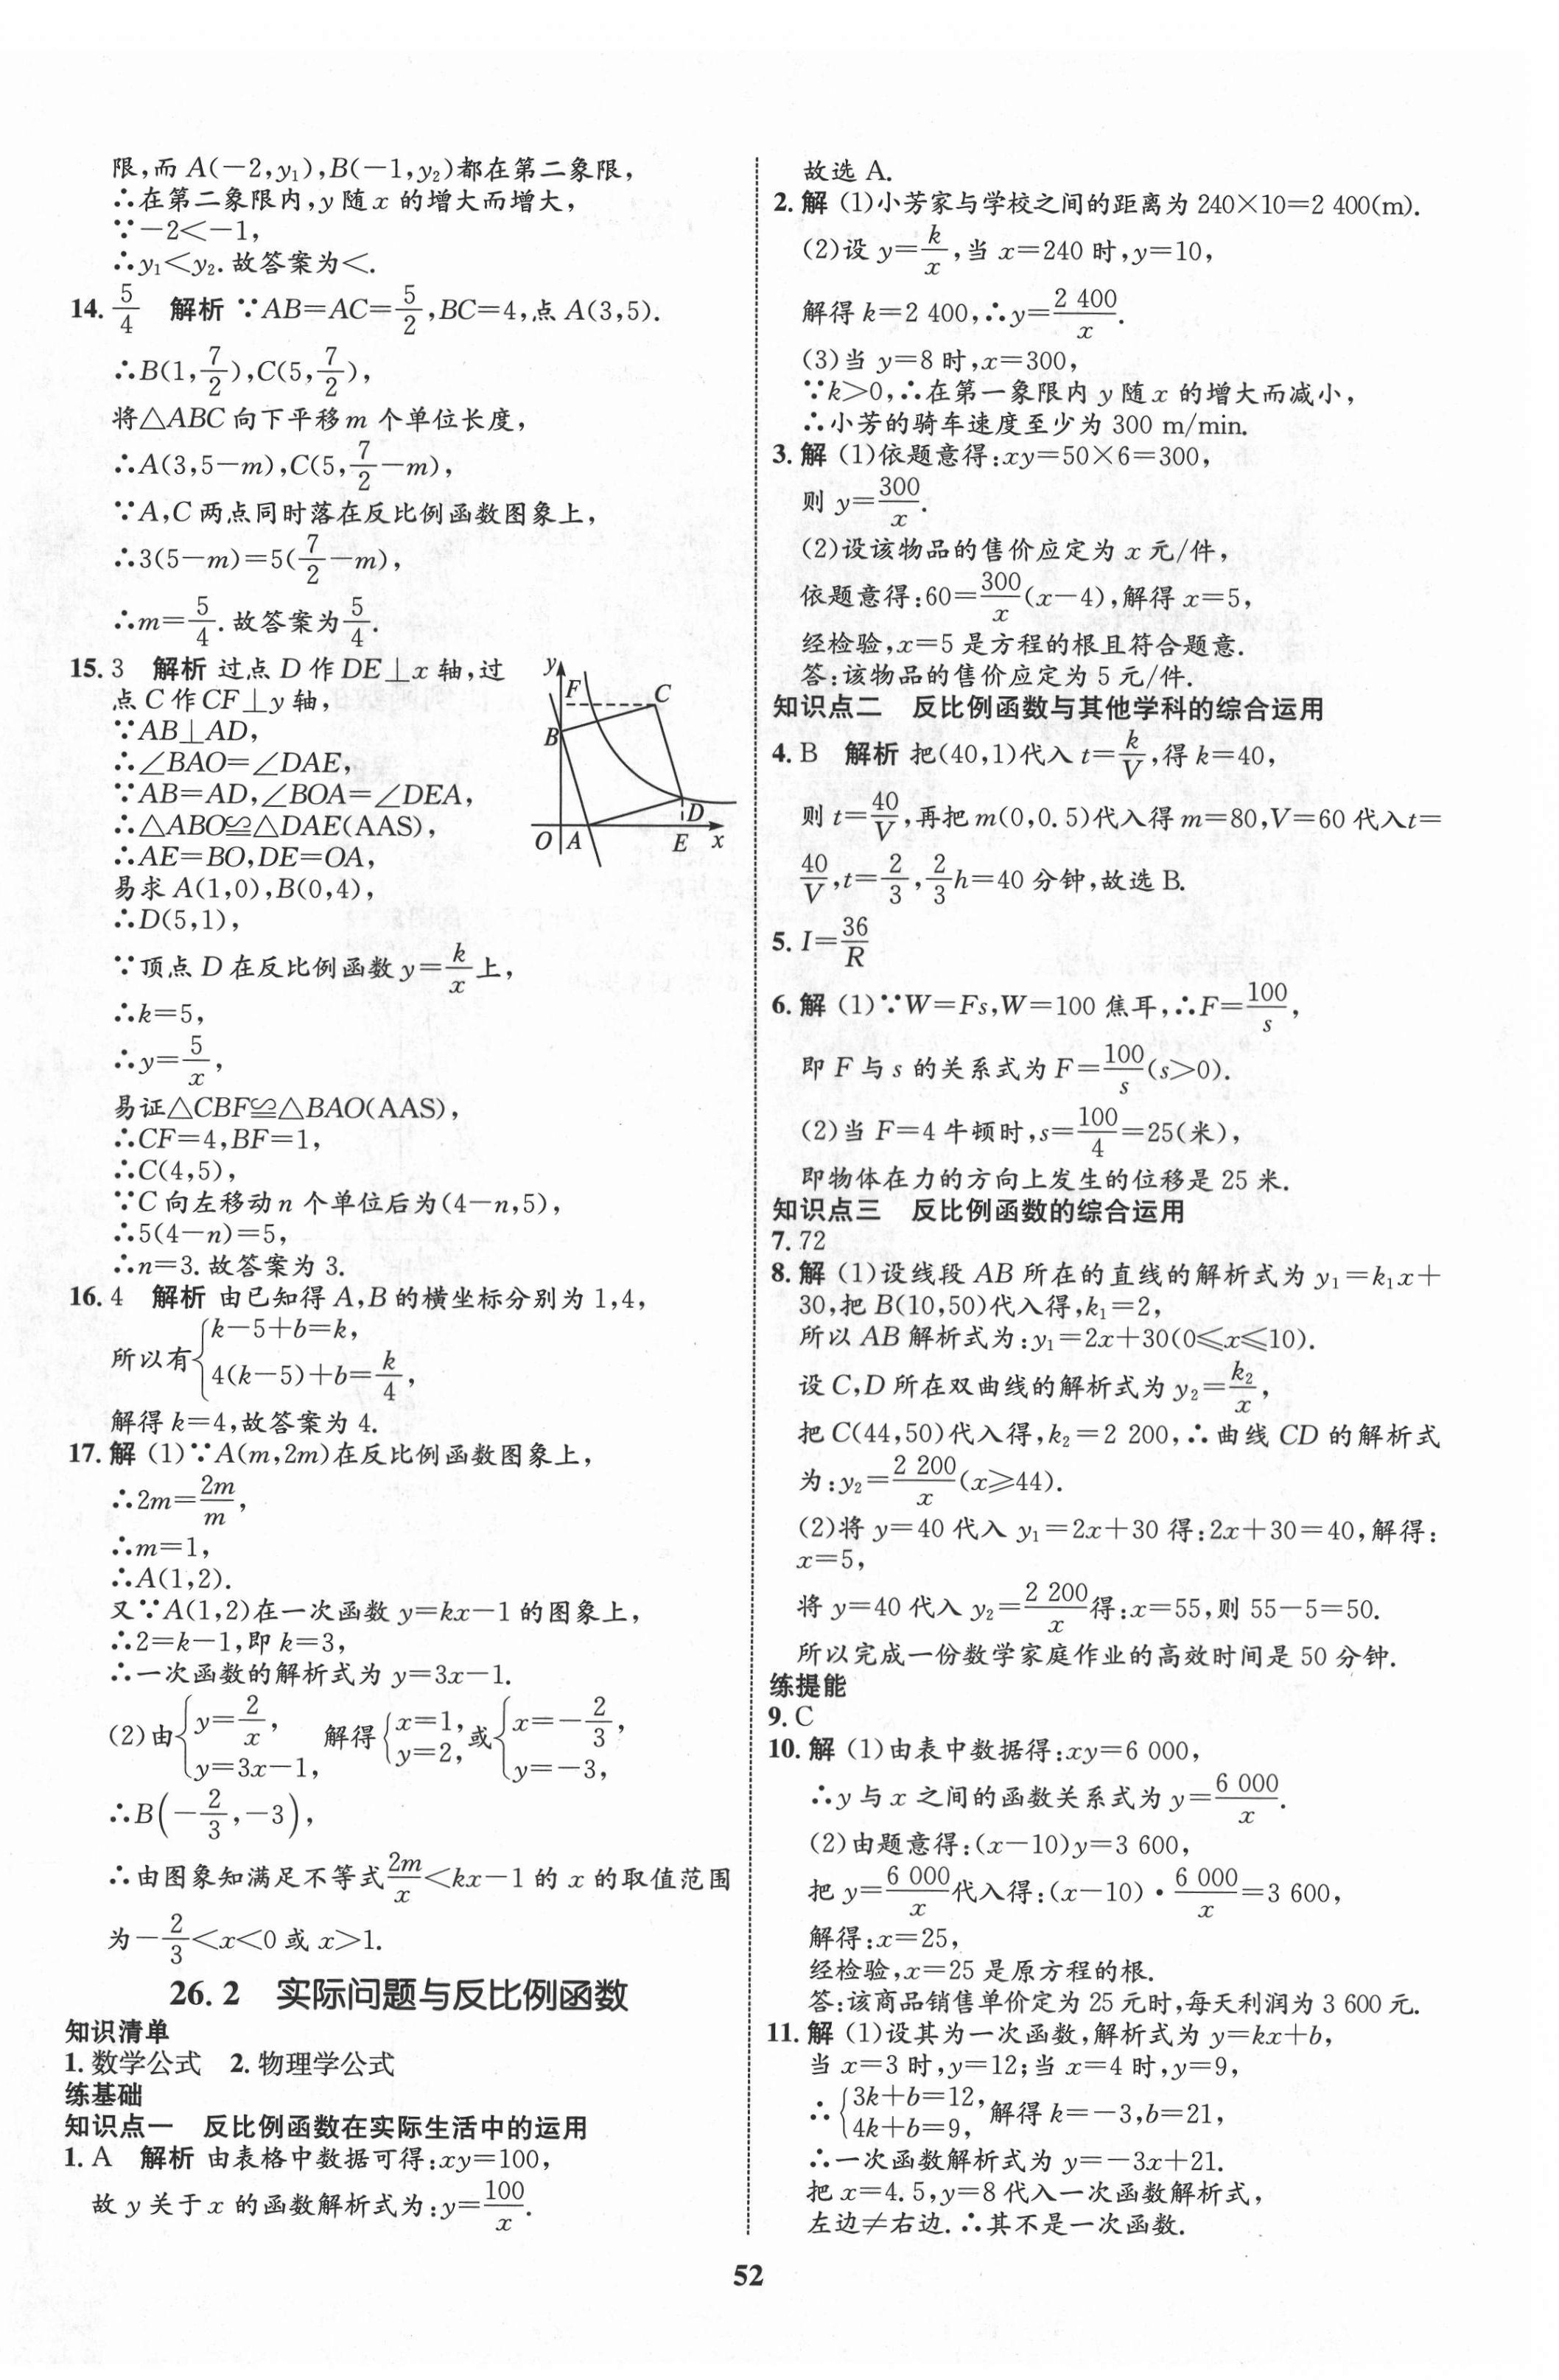 限,而 A(−2,y₁),B(−1,y₂)都在第二象限,
∴在第二象限内,y 随 x 的增大而增大,
∵−2<−1,
∴y₁<y₂.故答案为<.
14. 5/4 解析 ∵AB=AC=5/2,BC=4,点 A(3,5).
∴B(1,7/2),C(5,7/2),
将△ABC 向下平移 m 个单位长度,
∴A(3,5−m),C(5,7/2−m),
∵A,C 两点同时落在反比例函数图象上,
∴3(5−m)=5(7/2−m),
∴m=5/4.故答案为5/4.
15. 3 解析 过点 D 作 DE⊥x 轴,过
点 C 作 CF⊥y 轴,
∵AB⊥AD,
∴∠BAO=∠DAE,
∵AB=AD,∠BOA=∠DEA,
∴△ABO≌△DAE(AAS),
∴AE=BO,DE=OA,
易求 A(1,0),B(0,4),
∴D(5,1),
∵顶点 D 在反比例函数 y=k/x上,
∴k=5,
∴y=5/x,
易证△CBF≌△BAO(AAS),
∴CF=4,BF=1,
∴C(4,5),
∵C 向左移动 n 个单位后为(4−n,5),
∴5(4−n)=5,
∴n=3.故答案为 3.
y
F
C
B
D
O
A
E
x
16. 4 解析 由已知得 A,B 的横坐标分别为 1,4,
所以有{k−5+b=k,
4(k−5)+b=k/4,
解得 k=4,故答案为 4.
17. 解 (1)∵A(m,2m)在反比例函数图象上,
∴2m=2m/m,
∴m=1,
∴A(1,2).
又∵A(1,2)在一次函数 y=kx−1 的图象上,
∴2=k−1,即 k=3,
∴一次函数的解析式为 y=3x−1.
(2)由{y=2/x, y=3x−1, 解得{x=1, y=2, 或{x=−2/3, y=−3,
∴B(−2/3,−3),
∴由图象知满足不等式2m/x<kx−1 的 x 的取值范围
为−2/3<x<0 或 x>1.
26.2 实际问题与反比例函数
知识清单
1. 数学公式 2. 物理学公式
练基础
知识点一 反比例函数在实际生活中的运用
1. A 解析 由表格中数据可得:xy=100,
故 y 关于 x 的函数解析式为:y=100/x.
故选 A.
2. 解 (1)小芳家与学校之间的距离为 240×10=2 400(m).
(2)设 y=k/x,当 x=240 时,y=10,
解得 k=2 400,∴y=2 400/x.
(3)当 y=8 时,x=300,
∵k>0,∴在第一象限内 y 随 x 的增大而减小,
∴小芳的骑车速度至少为 300 m/min.
3. 解 (1)依题意得:xy=50×6=300,
则 y=300/x.
(2)设该物品的售价应定为 x 元/件,
依题意得:60=300/x(x−4),解得 x=5,
经检验,x=5 是方程的根且符合题意.
答:该物品的售价应定为 5 元/件.
知识点二 反比例函数与其他学科的综合运用
4. B 解析 把(40,1)代入 t=k/V,得 k=40,
则 t=40/V,再把 m(0,0.5)代入得 m=80,V=60 代入t=
40/V,t=2/3,2/3h=40 分钟,故选 B.
5. I=36/R
6. 解 (1)∵W=Fs,W=100 焦耳,∴F=100/s,
即 F 与 s 的关系式为 F=100/s(s>0).
(2)当 F=4 牛顿时,s=100/4=25(米),
即物体在力的方向上发生的位移是 25 米.
知识点三 反比例函数的综合运用
7. 72
8. 解 (1)设线段 AB 所在的直线的解析式为 y₁=k₁x+
30,把 B(10,50)代入得,k₁=2,
所以 AB 解析式为:y₁=2x+30(0≤x≤10).
设 C,D 所在双曲线的解析式为 y₂=k₂/x,
把 C(44,50)代入得,k₂=2 200,∴曲线 CD 的解析式
为:y₂=2 200/x(x≥44).
(2)将 y=40 代入 y₁=2x+30 得:2x+30=40,解得:
x=5,
将 y=40 代入 y₂=2 200/x得:x=55,则 55−5=50.
所以完成一份数学家庭作业的高效时间是 50 分钟.
练提能
9. C
10. 解 (1)由表中数据得:xy=6 000,
∴y 与 x 之间的函数关系式为 y=6 000/x.
(2)由题意得:(x−10)y=3 600,
把 y=6 000/x代入得:(x−10)·6 000/x=3 600,
解得:x=25,
经检验,x=25 是原方程的根.
答:该商品销售单价定为 25 元时,每天利润为 3 600 元.
11. 解 (1)设其为一次函数,解析式为 y=kx+b,
当 x=3 时,y=12;当 x=4 时,y=9,
∴{3k+b=12, 4k+b=9, 解得 k=−3,b=21,
∴一次函数解析式为 y=−3x+21.
把 x=4.5,y=8代入一次函数解析式,
左边≠右边.∴其不是一次函数.
52